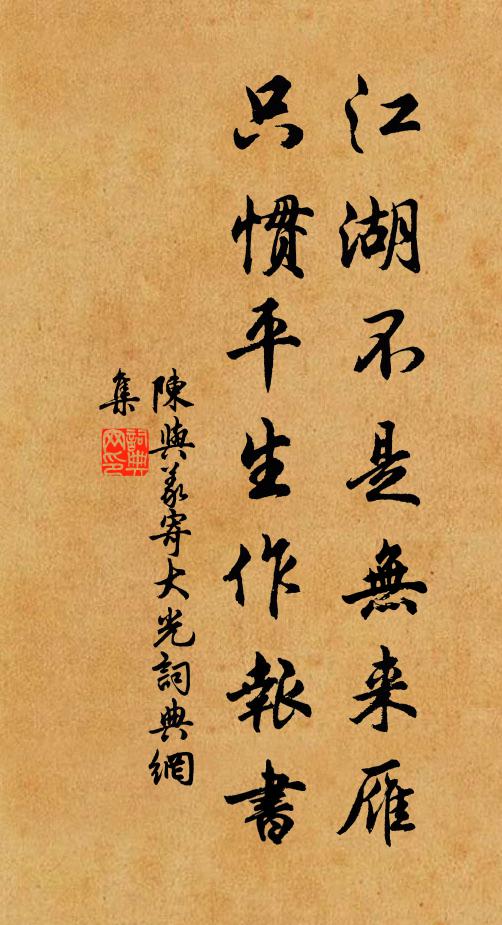 江湖不是無来雁
只慣平生作報書
陳與義寄大光詞典網
集
詞典
网印